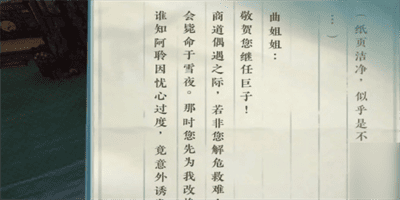 （纸页洁净，似乎是不
…）
曲姐姐：
敬贺您继任巨子！
商道偶遇之际，若非您解危救难
会毙命于雪夜。那时您先为我改
谁知阿聆因忧心过度，竟意外诱